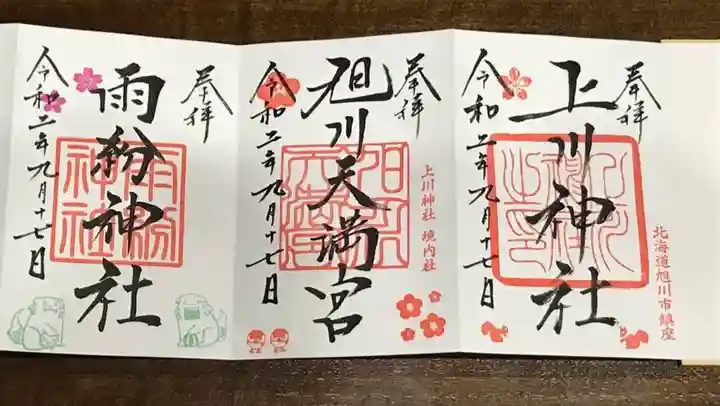 奉拝
上川神社
令和二年九月十七日
北海道旭川市鎮座
奉拝
旭川天満宮
令和二年九月十七日
上川神社 境内社
奉拝
雨粉神社
令和二年九月十七日
雨粉神社